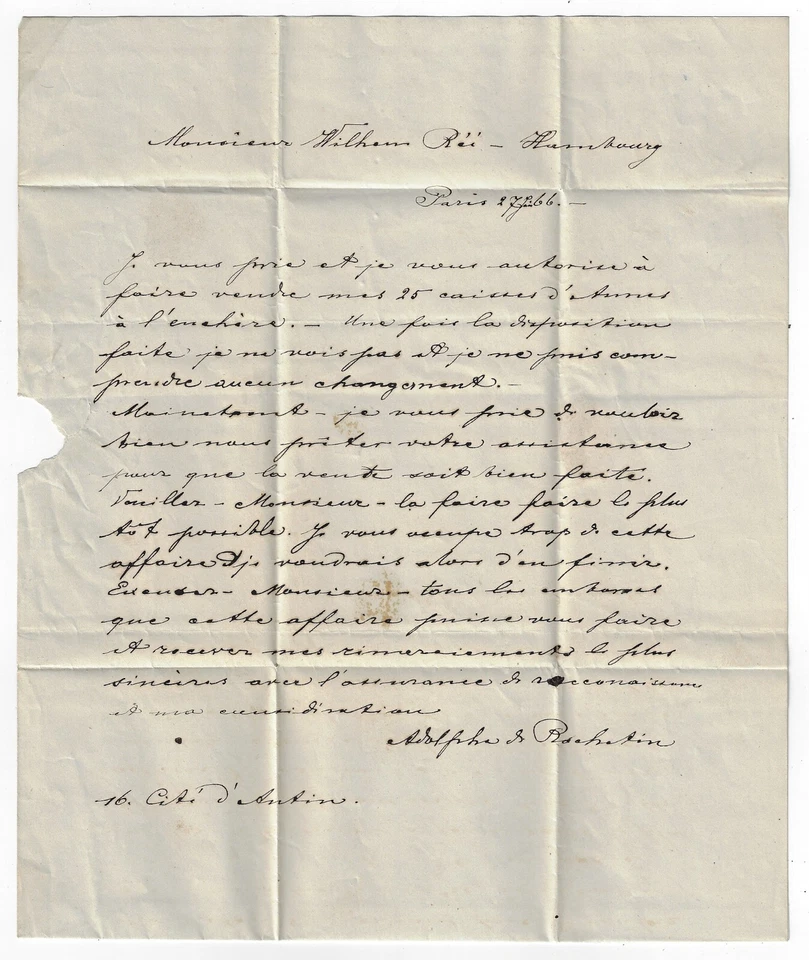 Monsieur Wilhem Réé – Hambourg
Paris 27 66. –
Je vous prie et je vous autorise à
faire vendre mes 25 caisses d'Armes
à l'enchère. – Une fois la disposition
faite je ne vois pas et je ne puis com-
prendre aucun changement. –
Maintenant – je vous prie de vouloir
bien nous prêter votre assistance
pour que la vente soit bien faite.
Veuillez – Monsieur – la faire faire le plus
tôt possible. Je vous occupe trop de cette
affaire je voudrais alors d'en finir.
Excusez – Monsieur – tous les embarras
que cette affaire puisse vous faire
et recevez mes rimerciements le plus
sincères avec l'assurance de reconnaissance
et ma considération
Adolphe de Rochetin
16. Cité d'Antin.